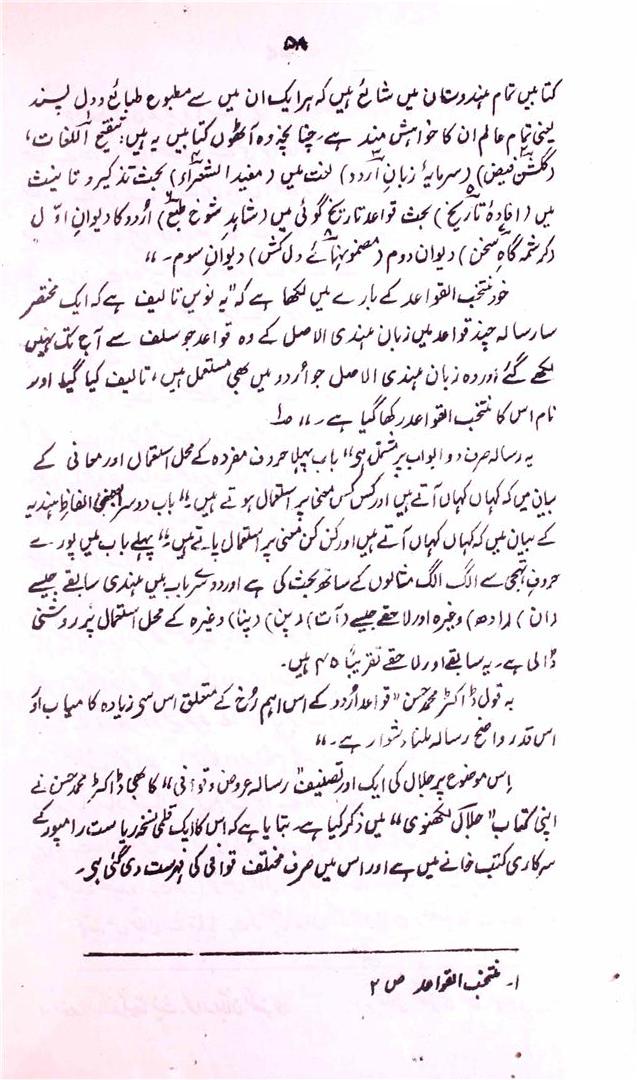 ۵۸
کتابیں تمام ہندوستان میں شائع ہیں کہ ہر ایک ان میں سے مطبوع طبائع و دل پسند
یعنی تمام عالم ان کا خواہش مند ہے ، چنانچہ وہ آٹھوں کتابیں یہ ہیں: تنقیح اللغات ،
(گلشن فیض) (سرمایۂ زبان اردو) لغت میں (مفید الشعراء) بحث تذکیر و تانیث
میں (افادۂ تاریخ) بحث قواعد تاریخ گوئی میں (شاہدِ شوخ طبع) اردو کا دیوانِ اوّل
(کرشمہ گاہِ سخن) دیوان دوم (مضمونہائے دل کش) دیوانِ سوم۔ ،،
خود منتخب القواعد کے بارے میں لکھا ہے کہ "یہ نویں تالیف ہے کہ ایک مختصر
سا رسالہ چند قواعد میں زبان ہندی الاصل کے وہ قواعد جو سلف سے آج تک نہیں
لکھے گئے اور وہ زبان ہندی الاصل جو اردو میں بھی مستعمل ہیں ، تالیف کیا گیا اور
نام اس کا منتخب القواعد رکھا گیا ہے۔ ،، ؎۱
یہ رسالہ صرف دو ابواب پر مشتمل ہی "باب پہلا حروف مفردہ کے محل استعمال اور معانی کے
بیان میں کہ کہاں کہاں آتے ہیں اور کس کس معنی پر استعمال ہوتے ہیں۔" باب دوسرا بعضے الفاظِ ہندیہ
کے بیان میں کہ کہاں کہاں آتے ہیں اور کن کن معنی پر استعمال پاتے ہیں۔" پہلے باب میں پورے
حروف تہجی سے الگ الگ مثالوں کے ساتھ بحث کی ہے اور دوسرے باب میں ہندی سابقے جیسے
(ان) (ادھ) وغیرہ اور لاحقے جیسے (آت) (پن) (پنا) وغیرہ کے محل استعمال پر روشنی
ڈالی ہے۔ یہ سابقے اور لاحقے تقریباً ۴۵ ہیں۔
بہ قول ڈاکٹر محمد حسن "قواعد اردو کے اس اہم رُخ کے متعلق اس سی زیادہ کامیاب اور
اس قدر واضح رسالہ ملنا دشوار ہے۔ ،،
اِس موضوع پر جلال کی ایک اور تصنیف "رسالہ عروض و قوافی" کا بھی ڈاکٹر محمد حسن نے
اپنی کتاب "جلال لکھنوی" میں ذکر کیا ہے۔ بتایا ہے کہ اس کا ایک قلمی نسخہ ریاست رامپور کے
سرکاری کتب خانے میں ہے اور اس میں صرف مختلف قوافی کی فہرست دی گئی ہی۔
۱۔ منتخب القواعد ص ۲